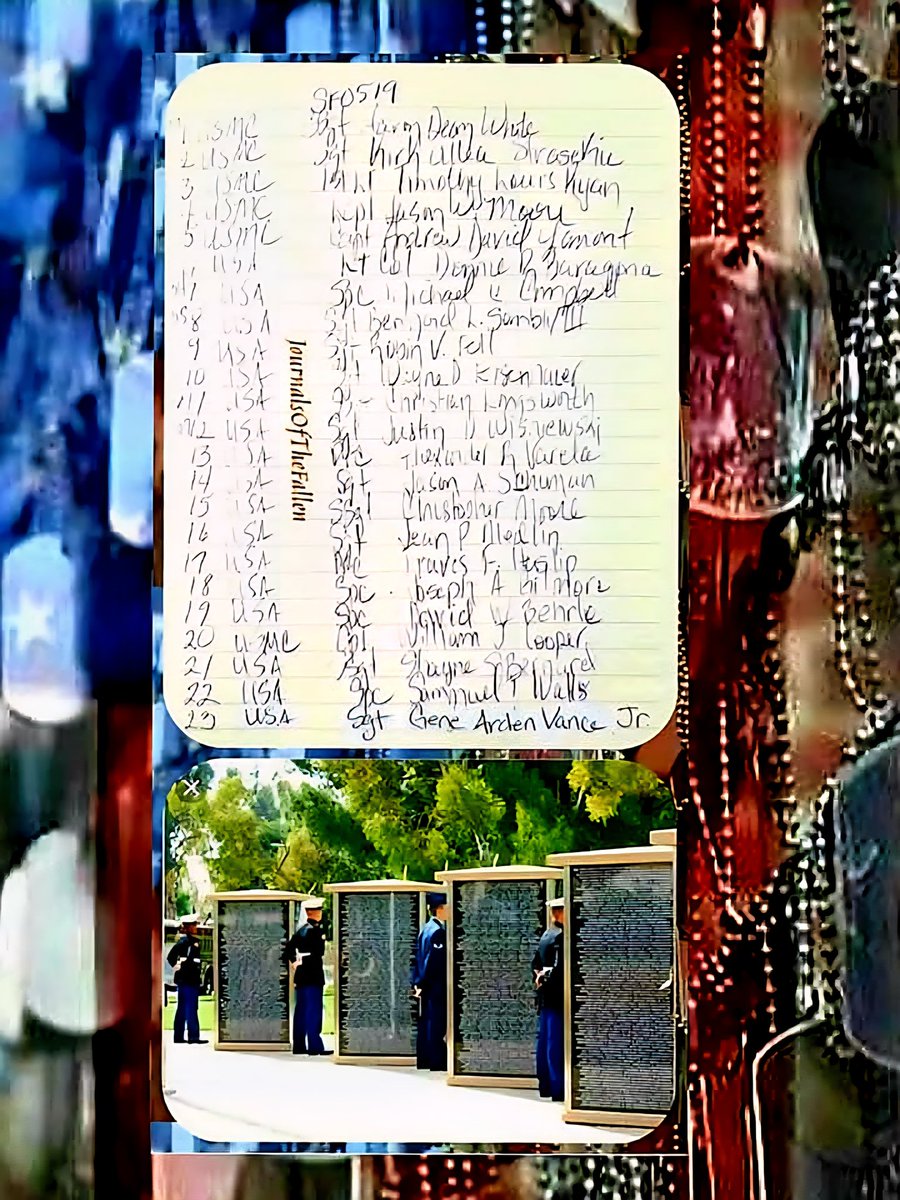 SFO519
1 USMC Sgt Dean White
2 USMC Sgt Kirk Allen Straseskie
3 USMC 1st Lt Timothy Louis Ryan
4 USMC Jason W. Moore
5 USMC Capt Andrew David Lamont
USA Lt Col Dominic R Baragona
7 USA Spc Michael C Campbell
8 USA Sgt Bernard L. Sembly III
9 USA Sgt Robin V. Fell
10 USA Sgt Wayne D
11 USA Christian Longsworth
12 USA Sgt Justin D Wisniewski
13 USA Pfc Alexander R Varela
14 USA Sgt Jason A. Schuman
15 USA SSgt Christopher Moore
16 USA Sgt Jean P Medlin
17 USA Pfc Travis F. Haslip
18 USA Spc Joseph A Gilmore
19 USA Spc David W Behrle
20 USMC Cpl William J Cooper
21 USA Sgt Shayne S Bernard
22 USA Spc Sammuel T Watts
23 USA Sgt Gene Arden Vance Jr.
JournalsOfTheFallen